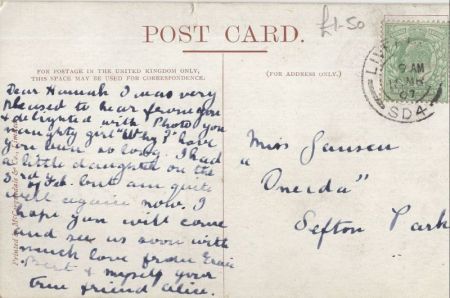 £1-50
POST CARD.
FOR POSTAGE IN THE UNITED KINGDOM ONLY,
THIS SPACE MAY BE USED FOR CORRESPONDENCE.
(FOR ADDRESS ONLY.)
Dear Hannah I was very
pleased to hear from you
& delighted with Photo, you
naughty girl "Why" have
you been so long. I had
a little daughter on the
3rd of Feb. but am quite
well again now. I
hope you will come
and see us soon with
much love from
Bert & myself your
true friend Alice.
Miss Jansen
"Oneida"
Sefton Park
9 AM
07
SD4